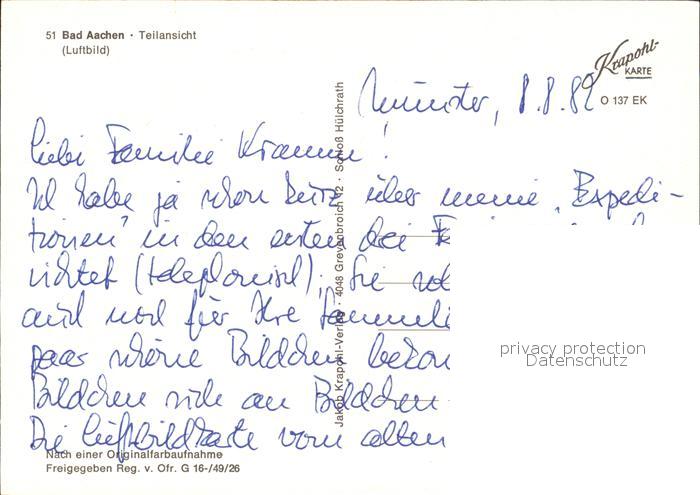 51 Bad Aachen · Teilansicht
(Luftbild)
Krapohl-
KARTE
O 137 EK
Münster, 8.8.82
Liebe Familie Kramm!
Ich habe ja schon kurz über meine „Expedi-
tionen" in den ersten drei
richtet (telephonisch). Sie
auch noch für Ihre Sammel
paar schöne Bildchen bekom
Bildchen sich an Bildchen
Die Luftbildkarte vom alten
Jakob Krapohl-Verlag · 4048 Grevenbroich 12 · Schloß Hülchrath
privacy protection
Datenschutz
Nach einer Originalfarbaufnahme
Freigegeben Reg. v. Ofr. G 16-/49/26